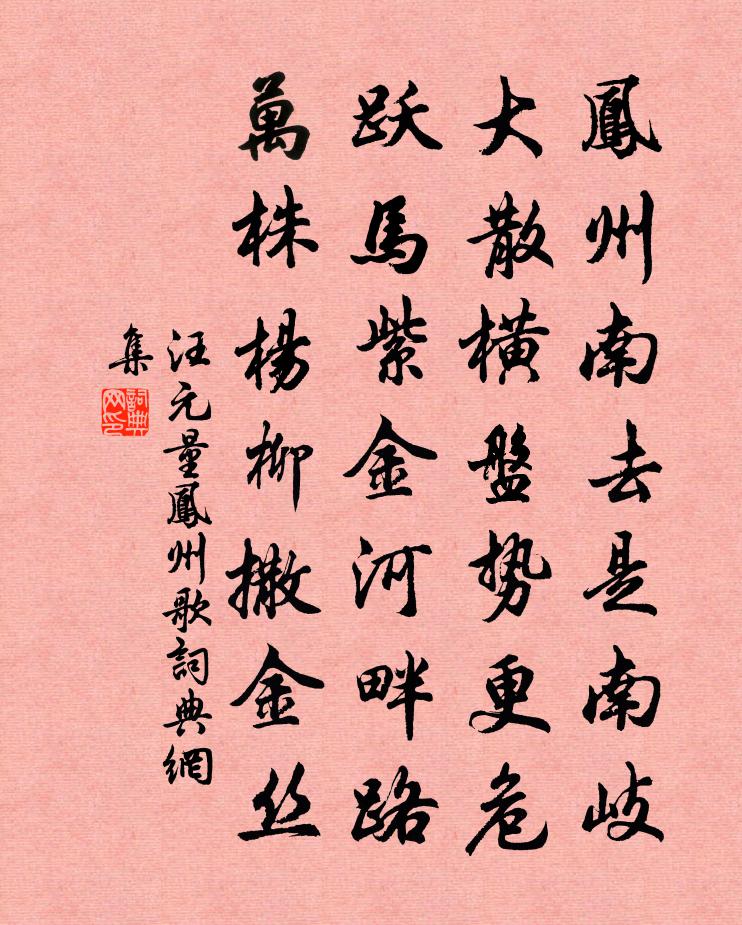 鳳州南去是南岐
大散橫盤势更危
跃馬紫金河畔路
萬株楊柳撒金丝
汪元量鳳州歌詞典網
集
詞典网印